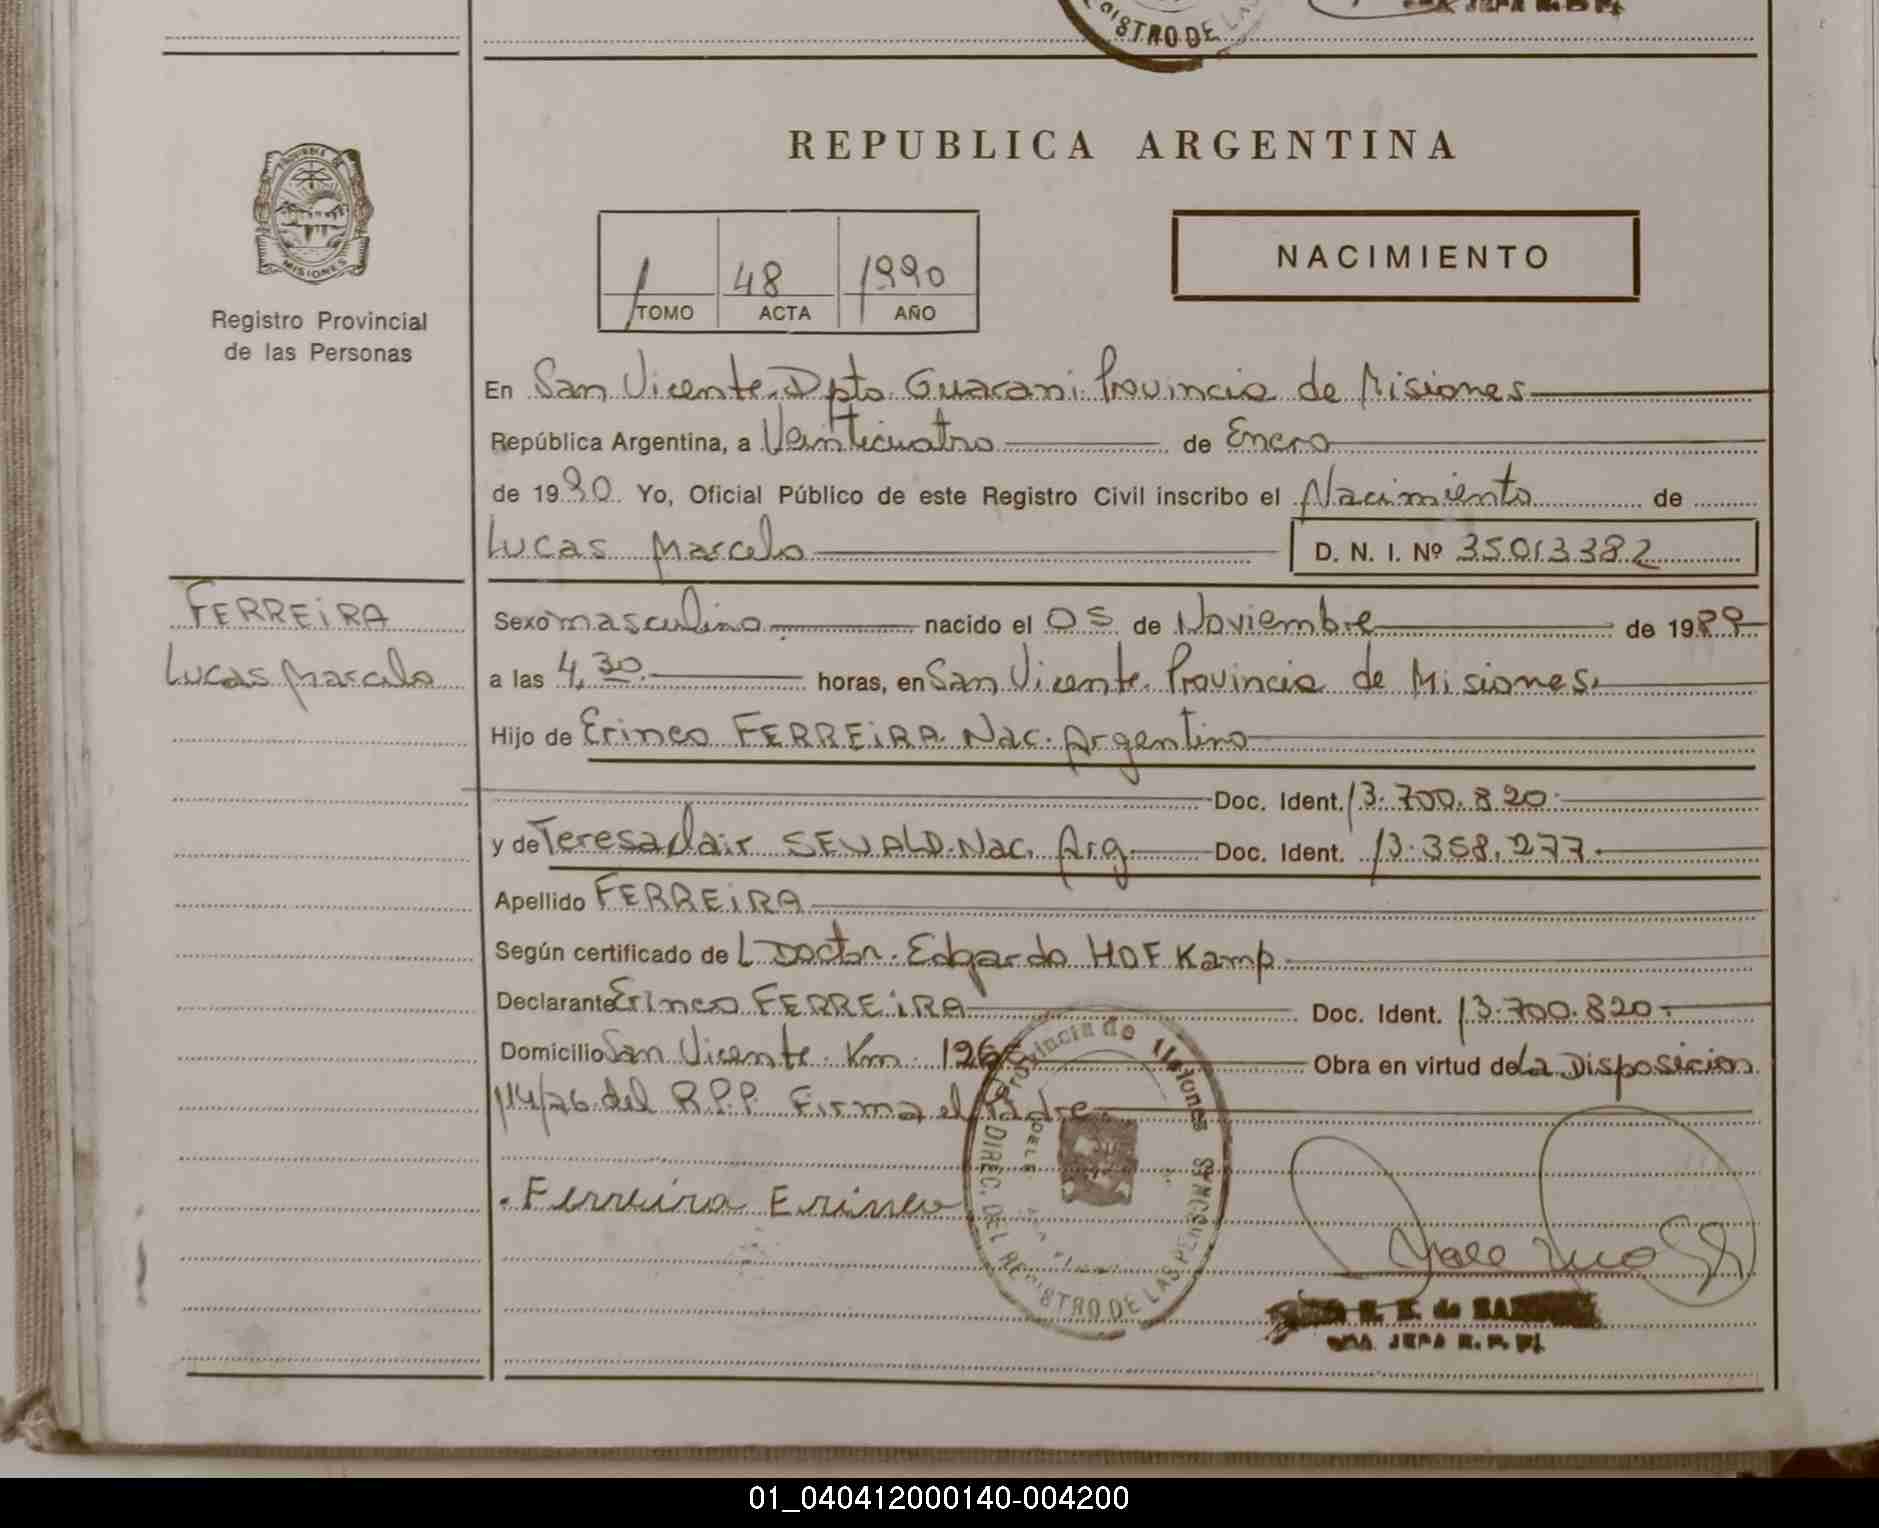 REPUBLICA ARGENTINA
PROVINCIA DE
MISIONES
Registro Provincial
de las Personas
1 48 1990
TOMO ACTA AÑO
NACIMIENTO
En San Vicente Dpto Guarani Provincia de Misiones
República Argentina, a Veinticuatro de Enero
de 1990 Yo, Oficial Público de este Registro Civil inscribo el Nacimiento de
Lucas Marcelo D. N. I. Nº 35013382
FERREiRA
Lucas Marcelo
Sexo masculino nacido el 05 de Noviembre de 1989
a las 4,30 horas, en San Vicente Provincia de Misiones
Hijo de Erineo FERREiRA Nac. Argentino
Doc. Ident. 13.700.820
y de Teresa clair SEWALD Nac. Arg Doc. Ident. 13.358.277
Apellido FERREiRA
Según certificado de L Doctor Edgardo HOFKamp
Declarante Erineo FERREiRA Doc. Ident. 13.700.820
Domicilio San Vicente Km Obra en virtud de La Disposicion
114/76 del R.P.P. Firma el Padre
Ferreira Erineo
Provincia de Misiones
DIREC. DEL REGISTRO DE LAS PER
JEFA R. P. P.
01_040412000140-004200